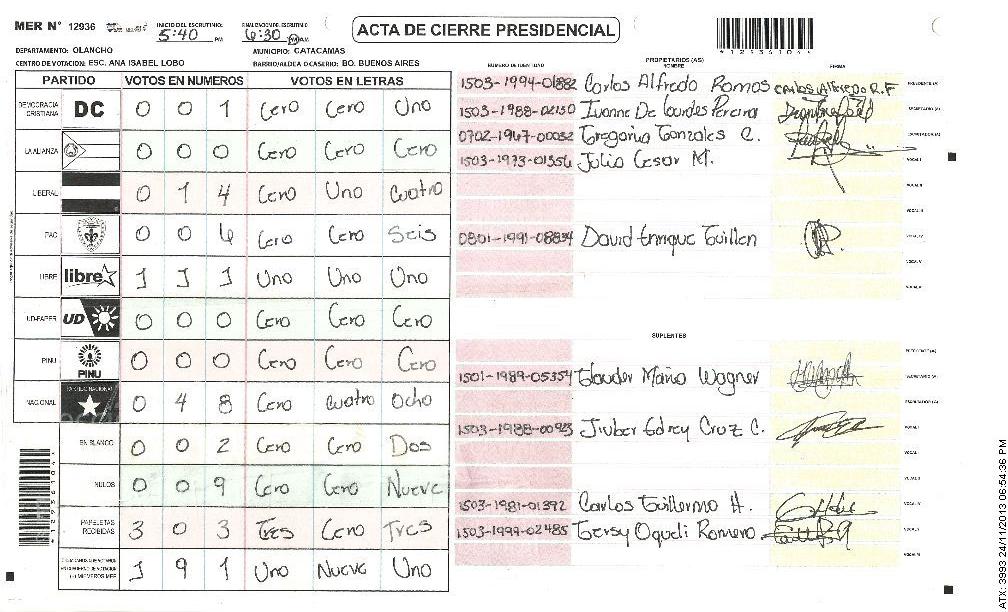 MER N° 12936 INICIO DEL ESCRUTINIO 5:40 PM FINALIZACION DEL ESCRUTINIO 6:30 PM AM
ACTA DE CIERRE PRESIDENCIAL
DEPARTAMENTO: OLANCHO MUNICIPIO: CATACAMAS
CENTRO DE VOTACION: ESC. ANA ISABEL LOBO BARRIO/ALDEA O CASERIO: BO. BUENOS AIRES
PARTIDO VOTOS EN NUMEROS VOTOS EN LETRAS
DEMOCRACIA CRISTIANA DC 0 0 1 Cero Cero Uno
LA ALIANZA 0 0 0 Cero Cero Cero
LIBERAL 0 1 4 Cero Uno Cuatro
PAC 0 0 6 Cero Cero Seis
LIBRE libre 1 1 1 Uno Uno Uno
UD-FAPER UD 0 0 0 Cero Cero Cero
PINU PINU 0 0 0 Cero Cero Cero
NACIONAL PARTIDO NACIONAL 0 4 8 Cero Cuatro Ocho
EN BLANCO 0 0 2 Cero Cero Dos
NULOS 0 0 9 Cero Cero Nueve
PAPELETAS RECIBIDAS 3 0 3 Tres Cero Tres
1 9 1 Uno Nueve Uno
NUMERO DE IDENTIDAD PROPIETARIOS (AS) NOMBRE FIRMA
1503-1994-01882 Carlos Alfredo Ramos Carlos Alfredo R.F PRESIDENTE (A)
1503-1988-02150 Ivonne De Lourdes Pereira SECRETARIO (A)
0702-1947-00032 Gregorio Gonzales C. ESCRUTADOR (A)
1503-1973-01556 Julio Cesar M. VOCAL I
VOCAL II
VOCAL III
0801-1991-08834 David Enrique Guillen VOCAL IV
VOCAL V
SUPLENTES
PRESIDENTE (A)
1501-1989-05354 Glauder Mario Wagner SECRETARIO (A)
ESCRUTADOR (A)
1503-1988-00923 Jiuber Edrey Cruz C. VOCAL I
1503-1981-01392 Carlos Guillermo H.
1503-1999-02485 Gersy Oqueli Romero
ATX: 3993 24/11/2013 06:54:36 PM